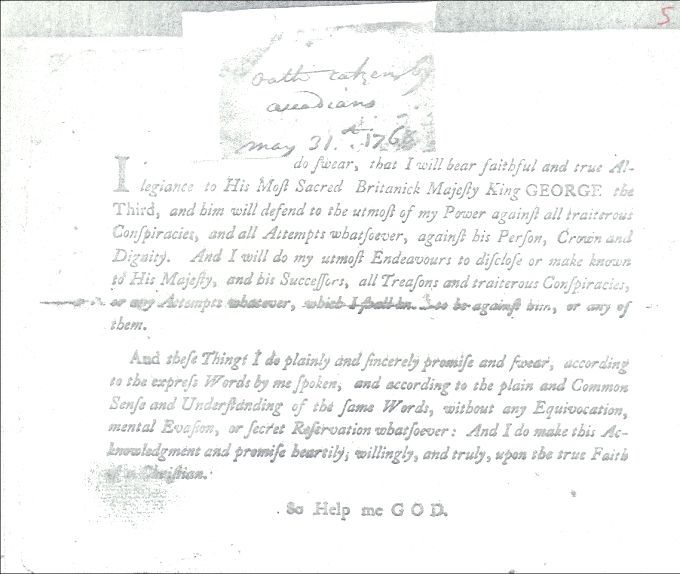 5
oath taken by
acadians
may 31.st 1768
I do ſwear, that I will bear faithful and true Al-
legiance to His Moſt Sacred Britanick Majeſty King GEORGE the
Third, and him will defend to the utmoſt of my Power againſt all traiterous
Conſpiracies, and all Attempts whatſoever, againſt his Perſon, Crown and
Dignity. And I will do my utmoſt Endeavours to diſcloſe or make known
to His Majeſty, and his Succeſſors, all Treaſons and traiterous Conſpiracies,
or any Attempts whatever, which I ſhall to be againſt him, or any of
them.
And theſe Things I do plainly and ſincerely promiſe and ſwear, according
to the expreſs Words by me ſpoken, and according to the plain and Common
Senſe and Underſtanding of the ſame Words, without any Equivocation,
mental Evaſion, or ſecret Reſervation whatſoever: And I do make this Ac-
knowledgment and promiſe heartily, willingly, and truly, upon the true Faith
of a Chriſtian.
So Help me G O D.